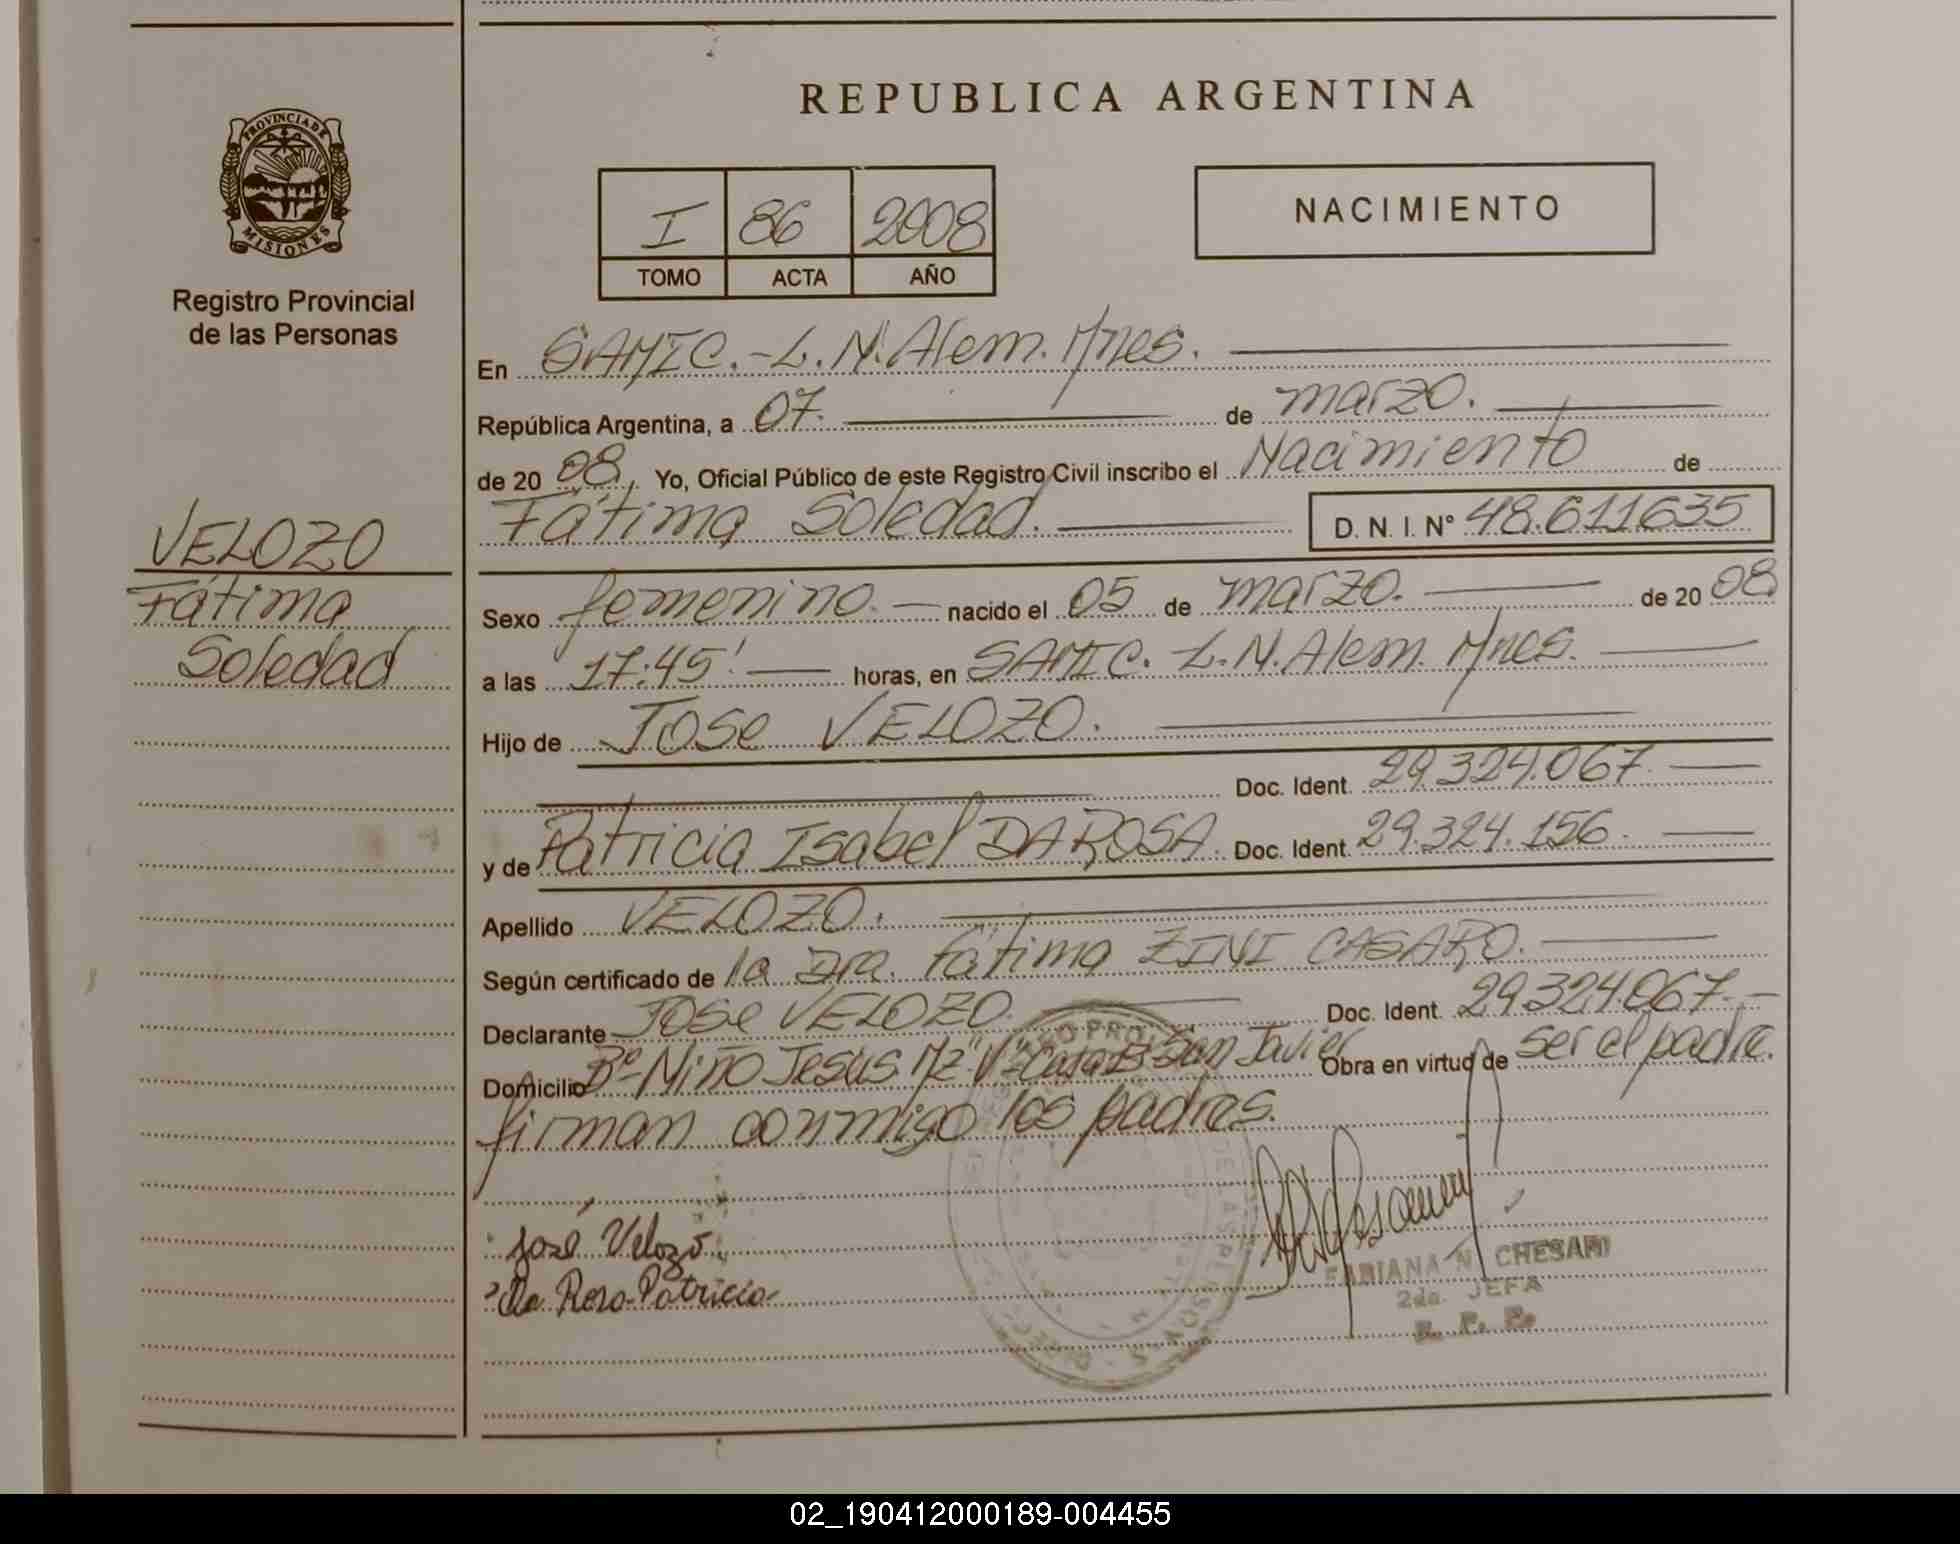 REPUBLICA ARGENTINA
PROVINCIA DE
MISIONES
Registro Provincial
de las Personas
I 86 2008
TOMO ACTA AÑO
NACIMIENTO
VELOZO
Fátima
Soledad
En SAMIC.-L.N.Alem.Mnes.
República Argentina, a 07. de marzo.
de 20 08. Yo, Oficial Público de este Registro Civil inscribo el Nacimiento de
Fátima Soledad. D. N. I. N° 48.611635
Sexo femenino. nacido el 05 de marzo. de 20 08
a las 17:45' horas, en SAMIC. L.N.Alem. Mnes.
Hijo de JOSe VELOZO.
Doc. Ident. 29.324.067.
y de Patricia Isabel DA ROSA. Doc. Ident. 29.324.156.
Apellido VELOZO.
Según certificado de la Dra. Fátima ZINI CASARO.
Declarante JOSe VELOZO. Doc. Ident. 29.324.067.-
Domicilio Bº Niño Jesús Mz "V" Casa San Javier Obra en virtud de ser el padre.
firman conmigo los padres.
José Velozo
Da Rosa Patricia
FABIANA N. CHESANI
2da. JEFA
R. P. P.
02_190412000189-004455